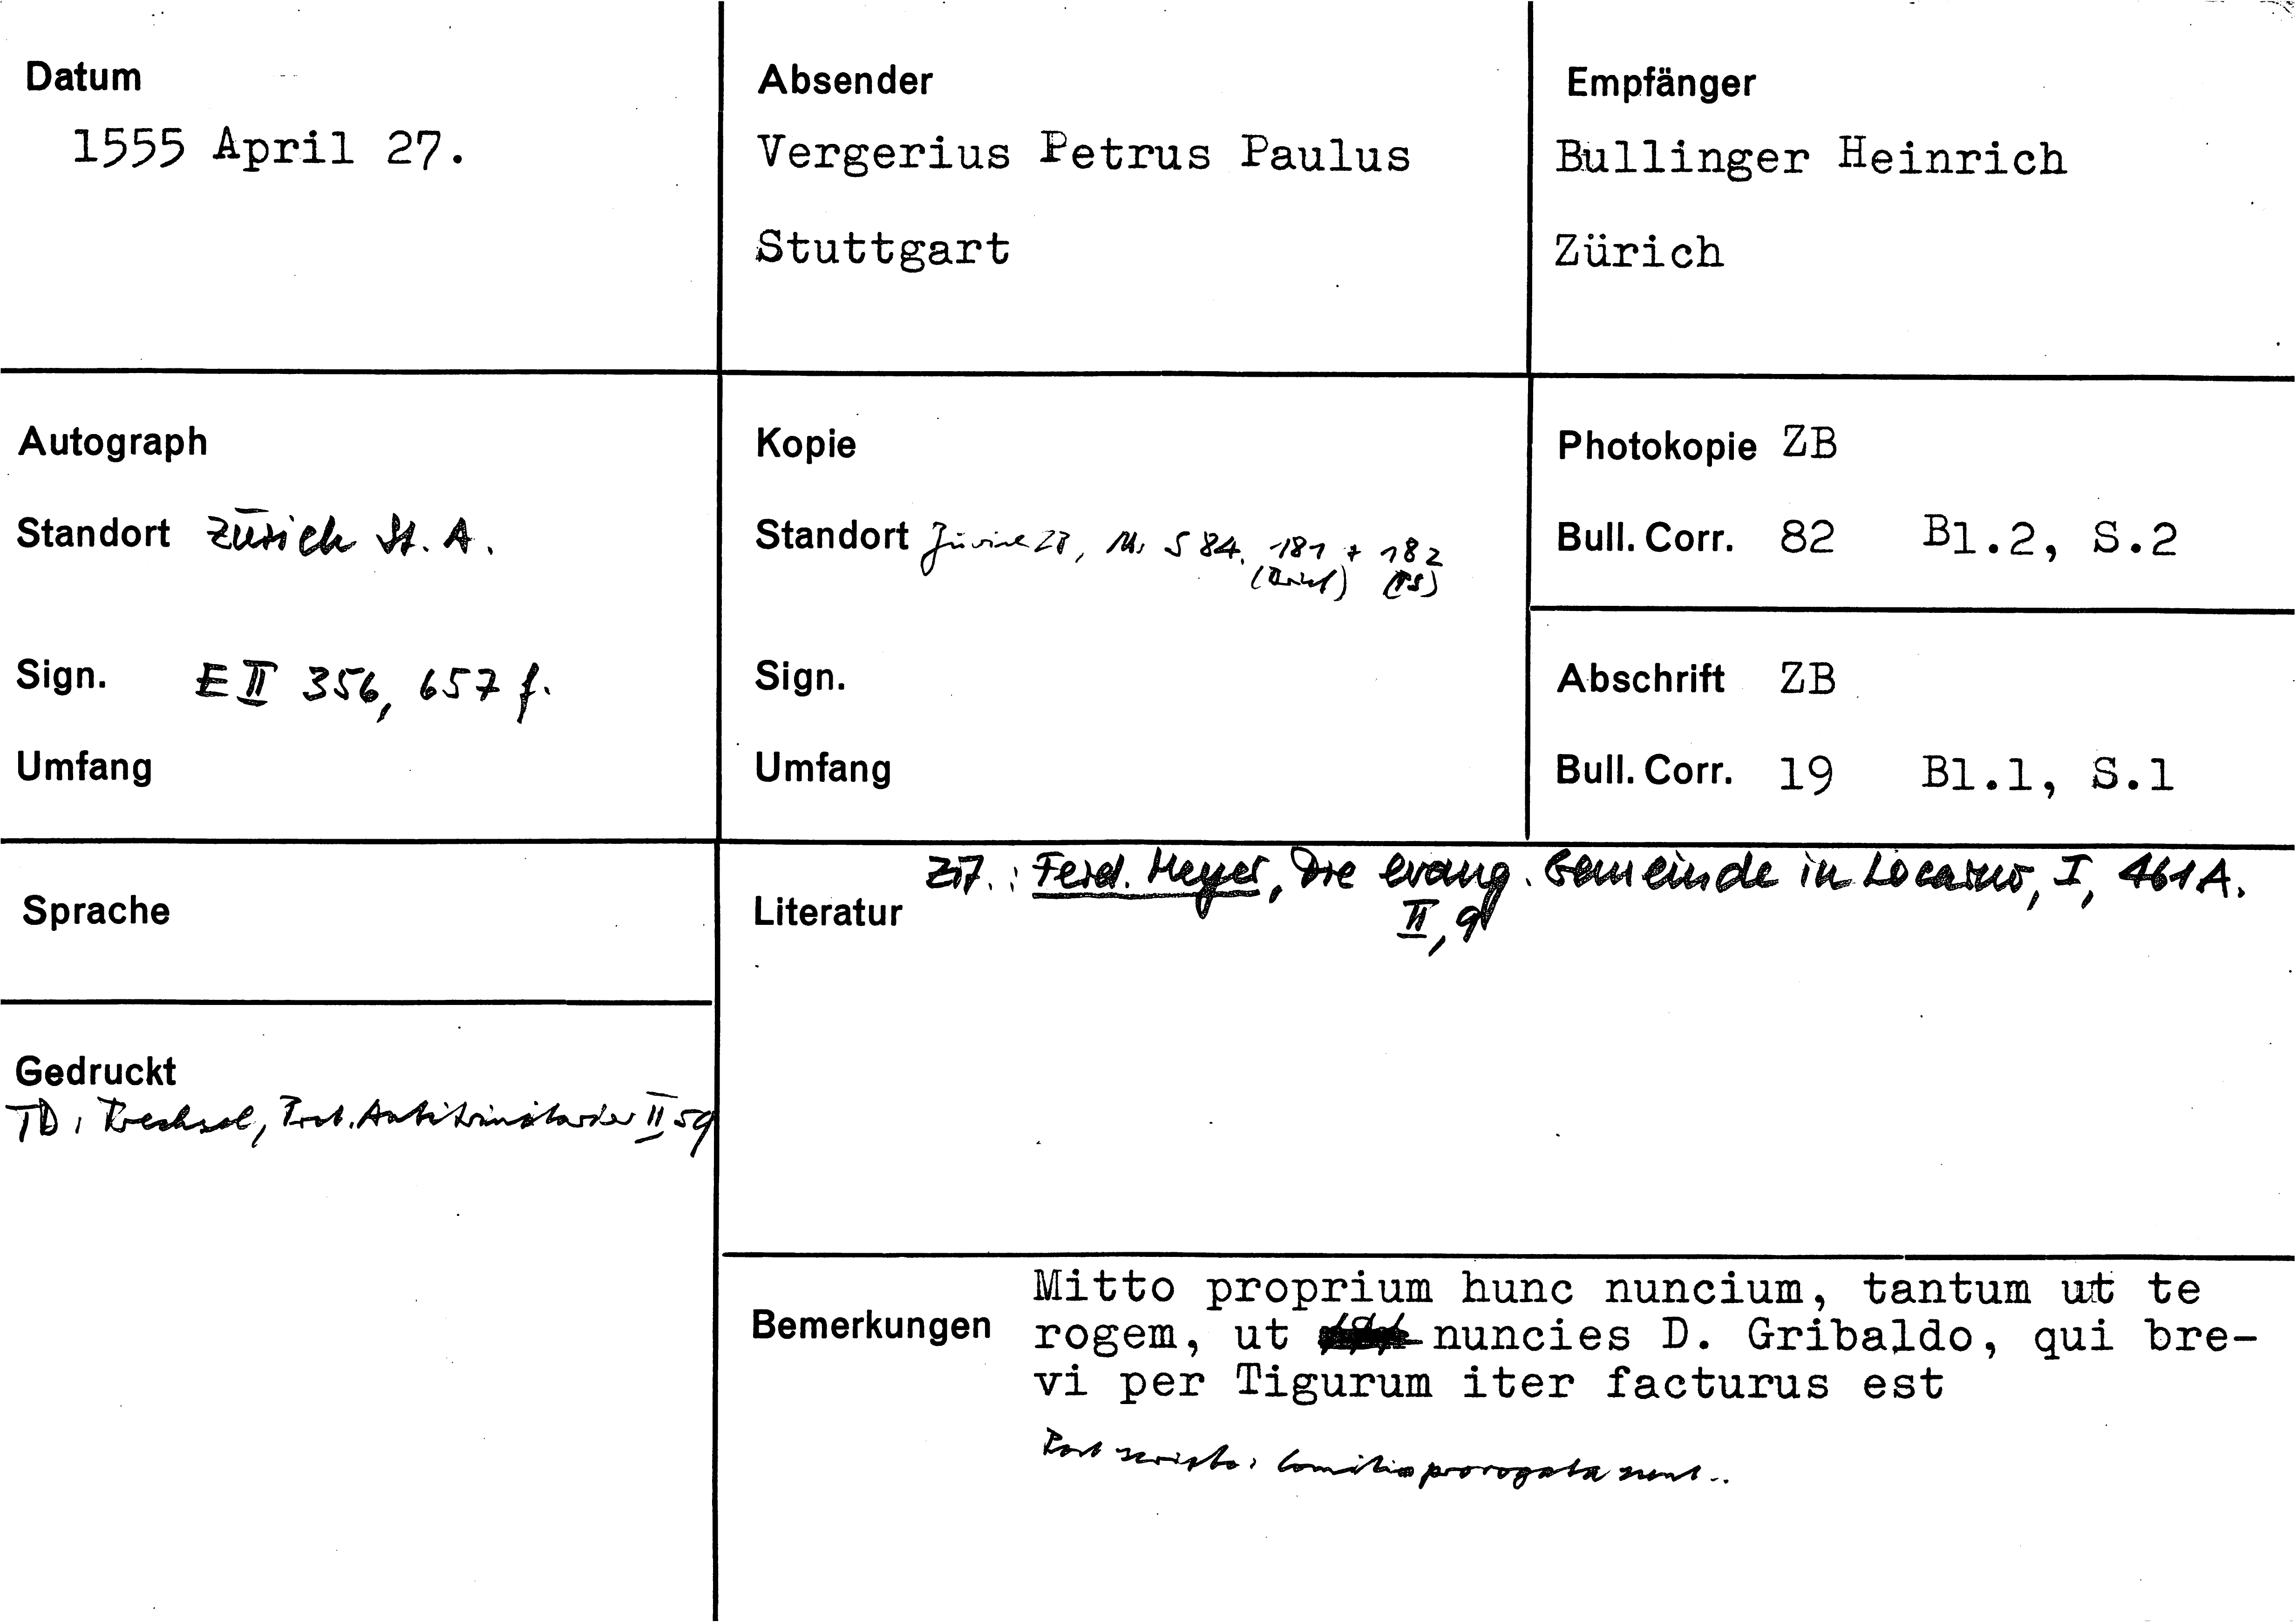 Datum
1555 April 27.
Absender
Vergerius Petrus Paulus
Stuttgart
Empfänger
Bullinger Heinrich
Zürich
Autograph
Standort Zürich St. A.
Sign. E II 356, 657 f.
Umfang
Kopie
Standort Zürich ZB, Ms S 84. 181 + 182
(Brief) (PS)
Sign.
Umfang
Photokopie ZB
Bull. Corr. 82 Bl.2, S.2
Abschrift ZB
Bull. Corr. 19 Bl.1, S.1
Sprache
Gedruckt
TD: Trechsel, Prot. Antitrinitarier II 59
Zit.: Ferd. Meyer, Die evang. Gemeinde in Locarno, I, 461 A.
Literatur II, 9
Bemerkungen
Mitto proprium hunc nuncium, tantum ut te
rogem, ut nuncies D. Gribaldo, qui bre-
vi per Tigurum iter facturus est
Post scripta: Comitia prorogata sunt..